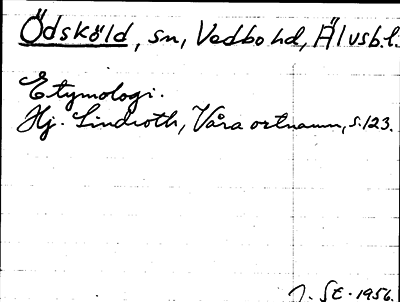 Ödsköld, sn, Vedbo hd, Älvsb.l.
Etymologi.
Hj. Lindroth, Våra ortnamn, s.123.
J. Sc. 1956.